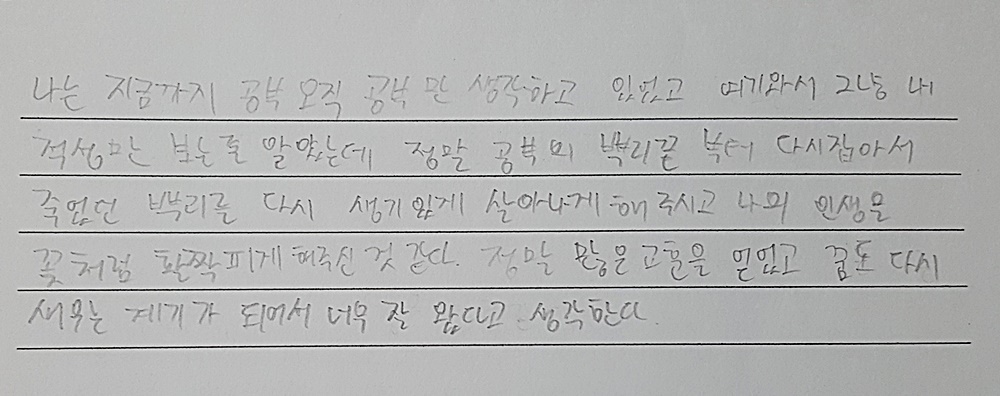 나는 지금까지 공부 오직 공부 만 생각하고 있었고 여기와서 그냥 내
적성만 보는줄 알았는데 정말 공부의 뿌리끝 부터 다시잡아서
죽었던 뿌리를 다시 생기있게 살아나게 해 주시고 나의 인생을
꽃처럼 활짝피게 해주신 것 같다. 정말 많은 교훈을 얻었고 꿈도 다시
세우는 계기가 되어서 너무 잘 왔다고 생각한다.